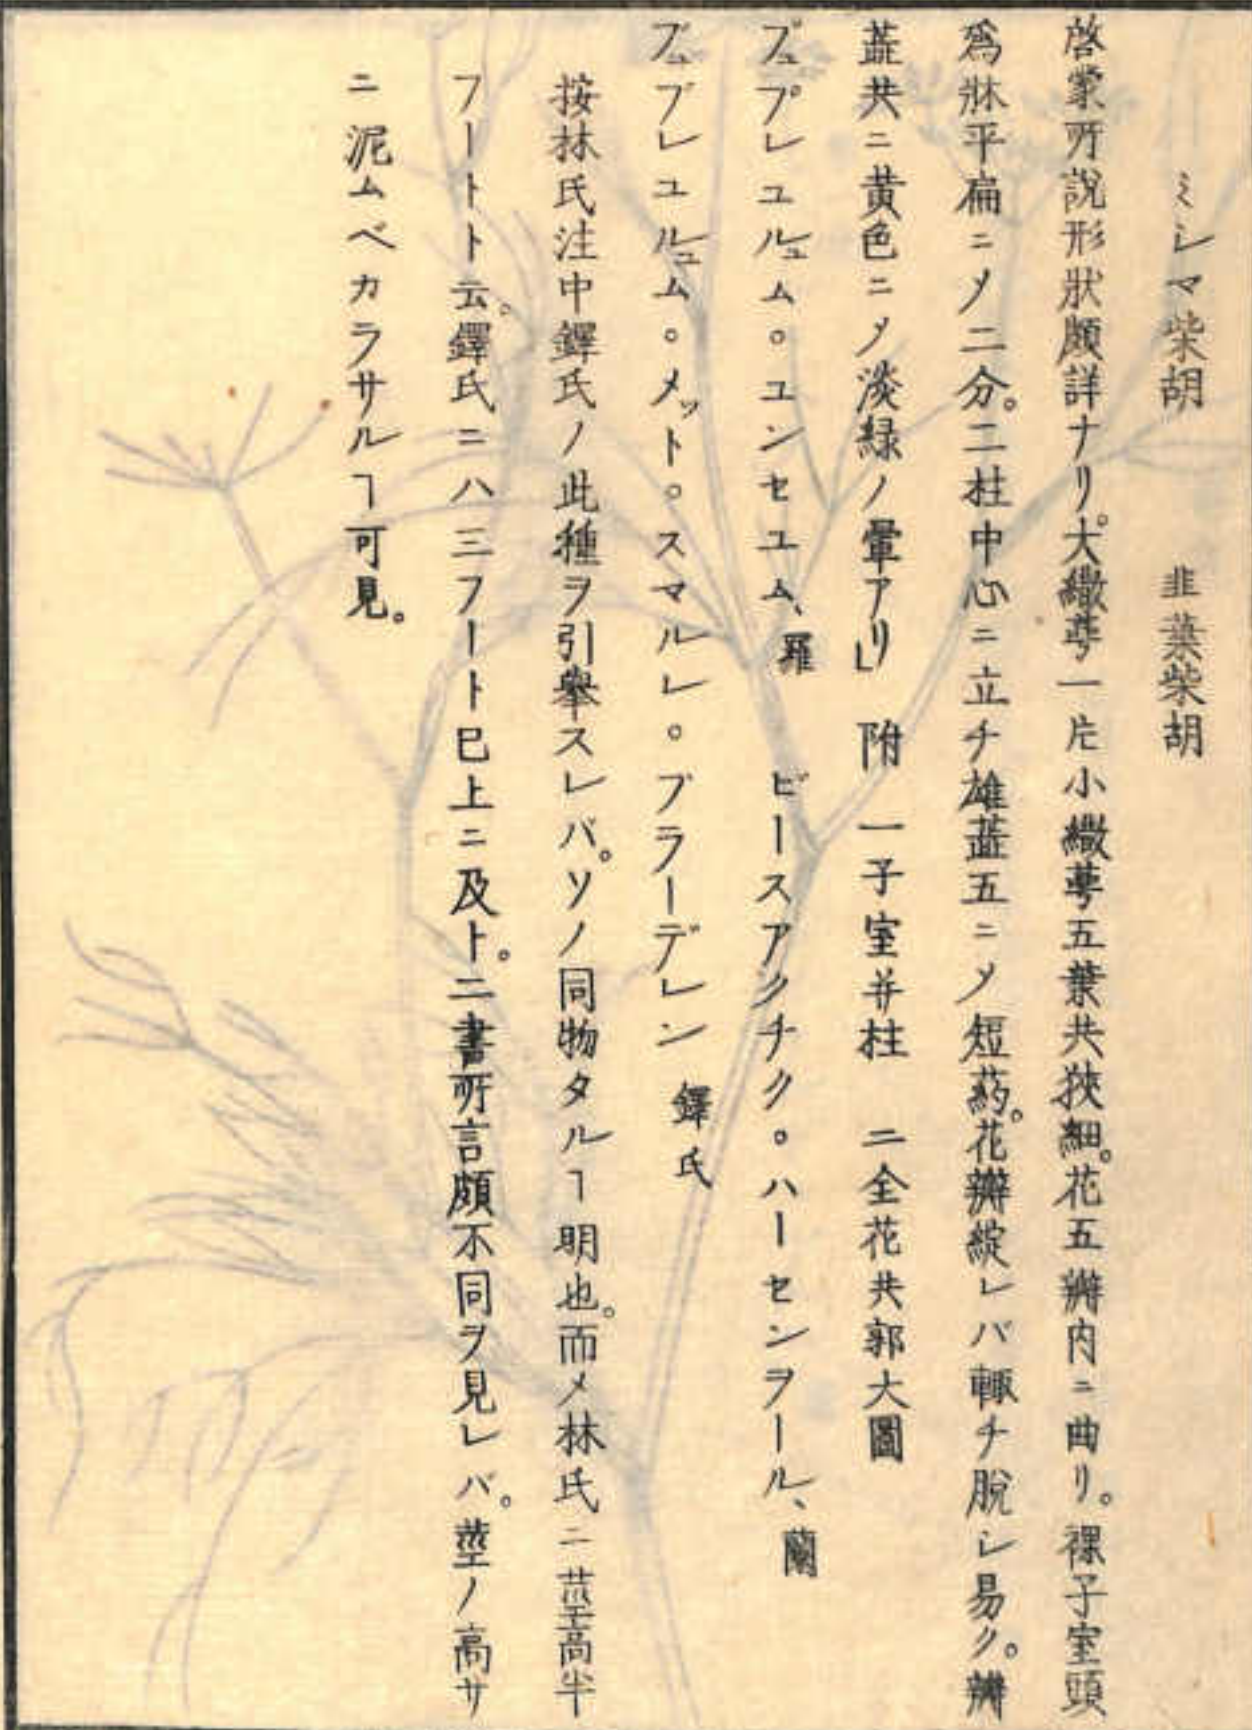 ミシマ柴胡　韭葉柴胡
啓蒙所說形狀頗詳ナリ。大繖萼一片小繖萼五葉共狹細。花五瓣内ニ曲リ。裸子室頭
爲牀平扁ニメ二分。二柱中心ニ立チ雄蕋五ニメ短葯。花瓣綻レバ輒チ脫シ易ク。瓣
蕋共ニ黄色ニメ淡緑ノ暈アリ」　附　一子室并柱　二全花共郭大圖
ブュプレユルュム。ユンセユム、羅　ビースアクチク。ハーセンヲール、蘭
ブュブレユルュム。メット。スマルレ。ブラーデレン　鐸氏
按林氏注中鐸氏ノ此種ヲ引擧スレバ。ソノ同物タルヿ明也。而メ林氏ニ莖高半
フートト云。鐸氏ニハ三フート巳上ニ及ト。二書所言頗不同ヲ見レバ。莖ノ高サ
ニ泥ムベカラサルヿ可見。